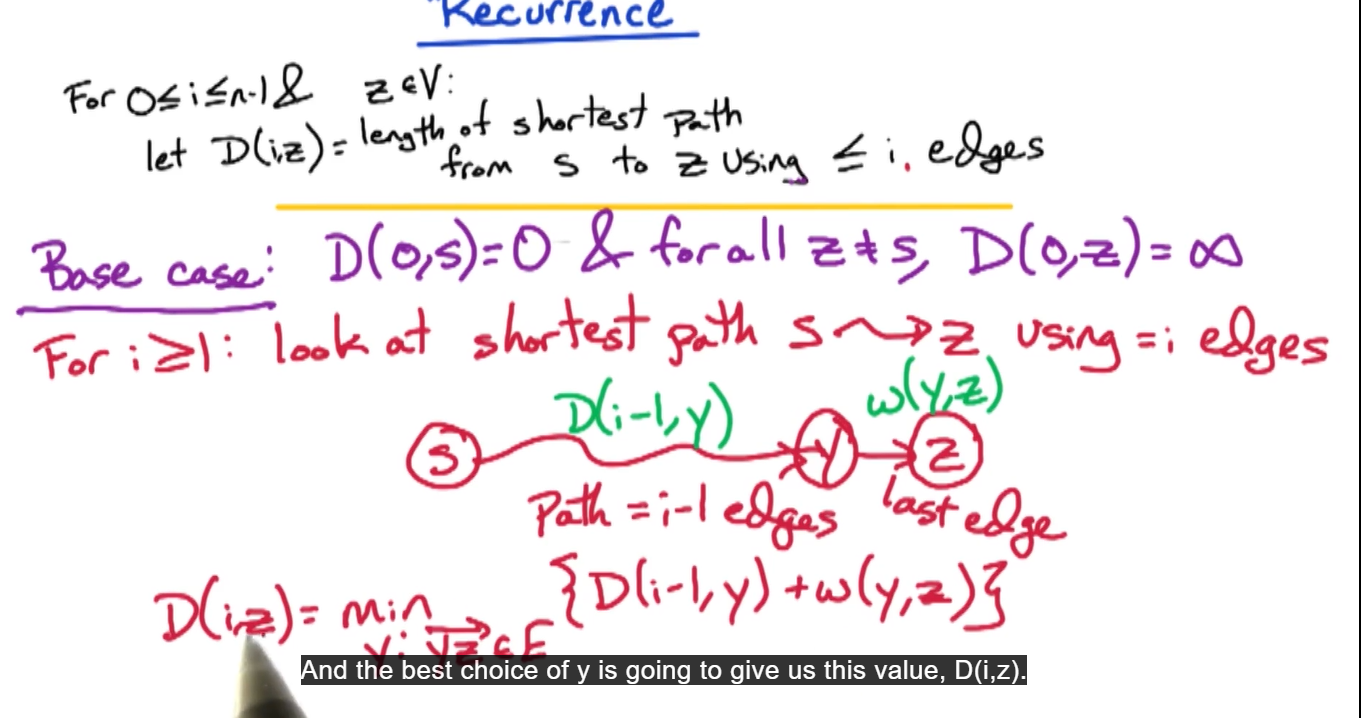 "Recurrence
For 0≤i≤n-1 & z∈V:
let D(i,z) = length of shortest path
from s to z using ≤ i edges
Base case: D(0,s)=0 & for all z≠s, D(0,z)=∞
For i≥1: look at shortest path s⇝z using =i edges
D(i-1,y) w(y,z)
s y z
Path = i-1 edges last edge
D(i,z) = min {D(i-1,y)+w(y,z)}
y: yz∈E
And the best choice of y is going to give us this value, D(i,z).